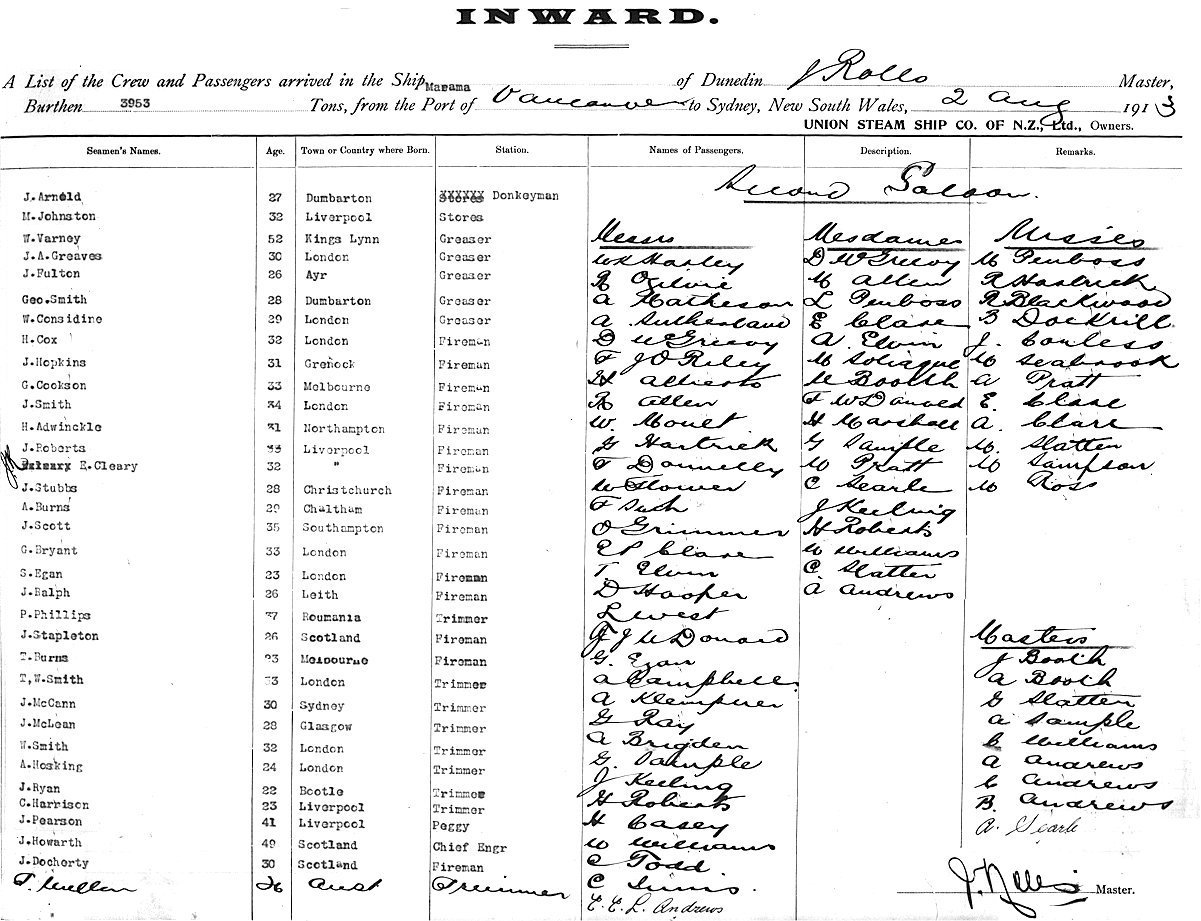 INWARD.
A List of the Crew and Passengers arrived in the Ship Marama of Dunedin J Rolls Master,
Burthen 3953 Tons, from the Port of Vancouver to Sydney, New South Wales, 2 Aug 1913
UNION STEAM SHIP CO. OF N.Z., Ltd., Owners.
Seamen's Names. Age. Town or Country where Born. Station. Names of Passengers. Description. Remarks.
Second Saloon.
J.Arnold 27 Dumbarton XXXXXX Stores Donkeyman
M.Johnston 32 Liverpool Stores
W.Varney 52 Kings Lynn Greaser Messrs Mesdames Misses
J.A.Greaves 30 London Greaser WK Harley D McGreevy M Penboss
J.Fulton 26 Ayr Greaser R Ogilvie M Allen R Hartrick
Geo.Smith 28 Dumbarton Greaser A Matheson L Penboss R Blackwood
W.Considine 29 London Greaser A Sutherland E Clare B Dockrill
H.Cox 32 London Fireman D McGreevy A. Elvin J. Conless
J.Hopkins 31 Grenock Fireman F J O Riley M Soliaque M Seabrook
G.Cookson 33 Melbourne Fireman H Alberts M Booth A Pratt
J.Smith 34 London Fireman R Allen F McDonald E. Clare
H.Adwinckle 31 Northampton Fireman W. Mouet H Marshall A. Clare
J.Roberts Liverpool Fireman G Hartrick G Sample M. Slatter
E.Cleary 32 " Fireman F Donnelly M Pratt M Sampson
J.Stubbs 28 Christchurch Fireman W Flower C Searle M Ross
A.Burns 29 Chaltham Fireman F Sush J Keeling
J.Scott 35 Southampton Fireman O Grimmer H Roberts
G.Bryant 33 London Fireman E P Clare W Williams
S.Egan 23 London Fireman T Elvin C. Slatter
J.Ralph 26 Leith Fireman D Hooper A Andrews
P.Phillips 37 Roumania Trimmer L West
J.Stapleton 26 Scotland Fireman F J McDonald Masters
T.Burns 23 Melbourne Fireman G. Egan J Booth
T,W.Smith London Trimmer A Campbell. A Booth
J.McCann 30 Sydney Trimmer A Klemperer G Slatter
J.McLean 28 Glasgow Trimmer G Ray A Sample
W.Smith 32 London Trimmer A Brigden C Williams
A.Hosking 24 London Trimmer G. Sample A Andrews
J.Ryan 22 Bootle Trimmer J Keeling C Andrews
C.Harrison 23 Liverpool Trimmer H Roberts B. Andrews
J.Pearson 41 Liverpool Peggy H Casey A. Searle
J.Howarth 49 Scotland Chief Engr W Williams
J.Docherty 30 Scotland Fireman C Todd
T. Mullen 26 Aust Trimmer C Sims. J. Rolls Master.
E. E. L. Andrews